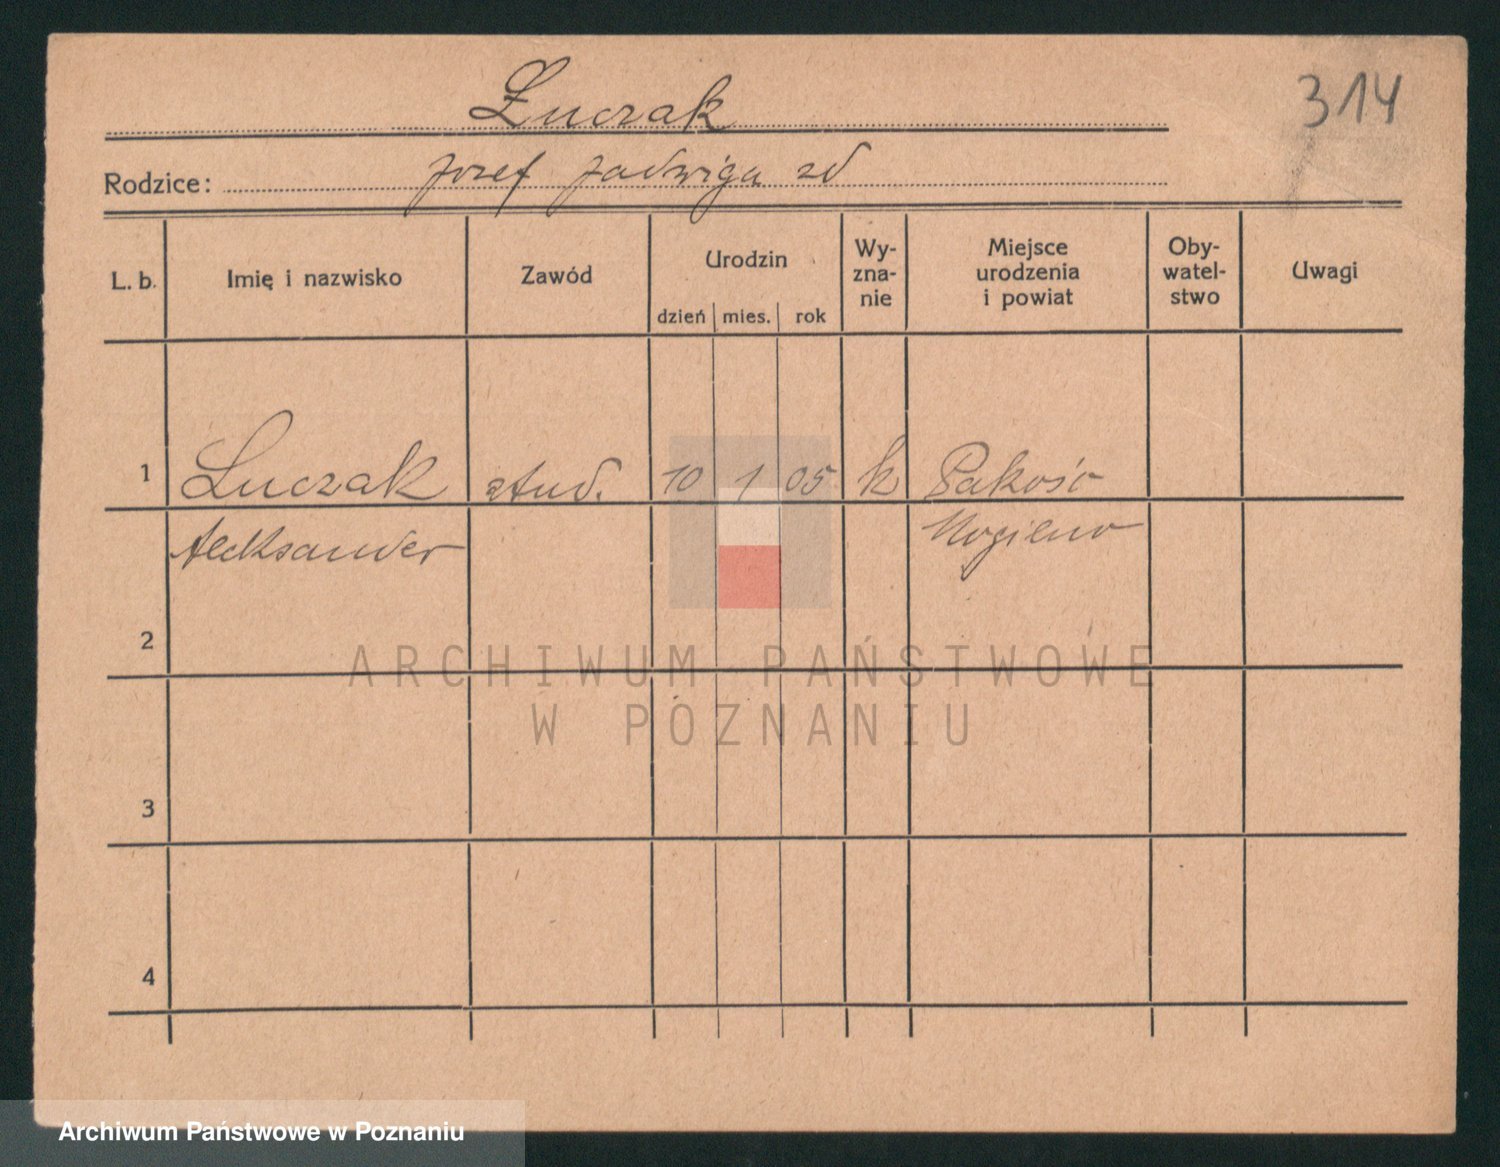 Łuczak
314
Rodzice: Józef Jadwiga zd
L. b. Imię i nazwisko Zawód Urodzin Wy-zna-nie Miejsce urodzenia i powiat Oby-watel-stwo Uwagi
dzień mies. rok
1 Łuczak stud. 10 1 05 k Pakość
Aleksander Mogilno
2
3
4
ARCHIWUM PAŃSTWOWE
W POZNANIU
Archiwum Państwowe w Poznaniu